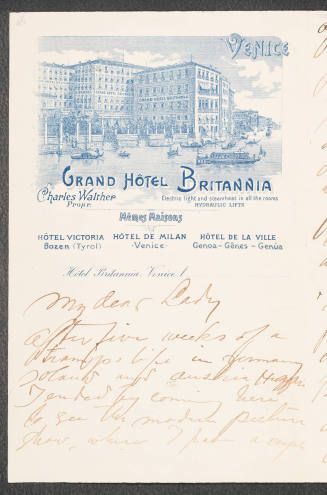 VENICE
GRAND HÔTEL BRITANNIA
GRAND HÔTEL BRITANNIA
Charles Walther
Propr.
Electric light and steamheat in all the rooms
HYDRAULIC LIFTS
Mêmes Maisons
HÔTEL VICTORIA
Bozen (Tyrol)
HÔTEL DE MILAN
Venice
HÔTEL DE LA VILLE
Genoa - Gênes - Genúa
Hotel Britannia, Venice
My dear Lady
after five weeks of a
tramps life in Germany
Holland and Austria
I ended by coming here
to see the modern picture
show, where I have a couple